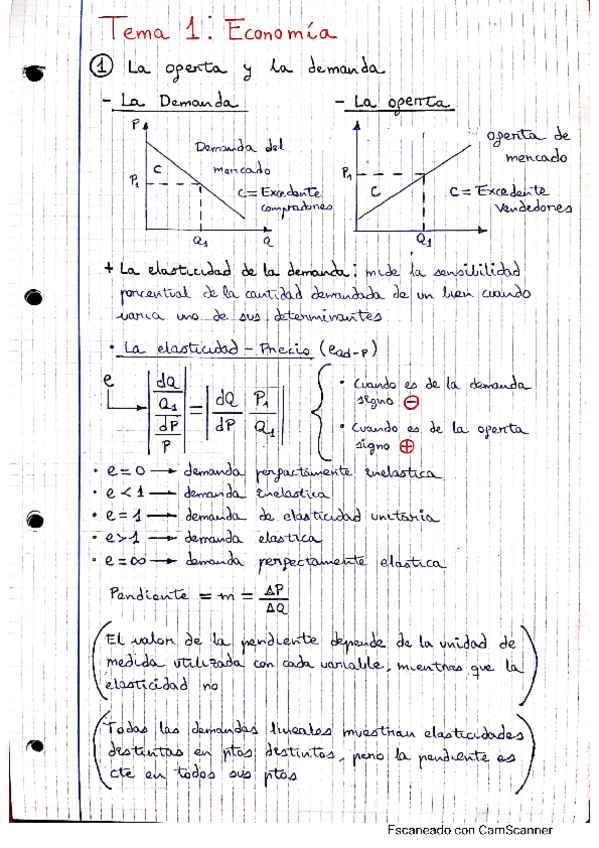 Tema 1: Economía
① La oferta y la demanda
- La Demanda
- La oferta
P
Demanda del
mercado
C
P₁
C = Excedente
compradores
Q₁
Q
oferta de
mercado
P₁
C
C = Excedente
Vendedores
Q₁
+ La elasticidad de la demanda: mide la sensibilidad
porcentual de la cantidad demandada de un bien cuando
varia uno de sus determinantes
· La elasticidad-Precio (eqd-p)
e
|dQ/Q₁ / dP/P| = |dQ/dP P₁/Q₁|
· Cuando es de la demanda
signo ⊖
· Cuando es de la oferta
signo ⊕
· e = 0 → demanda perfectamente inelastica
· e < 1 → demanda inelastica
· e = 1 → demanda de elasticidad unitaria
· e > 1 → demanda elastica
· e = ∞ → demanda perfectamente elastica
Pendiente = m = ΔP/ΔQ
(El valor de la pendiente depende de la unidad de
medida utilizada con cada variable, mientras que la
elasticidad no)
(Todas las demandas lineales muestran elasticidades
distintas en ptos distintos, pero la pendiente es
cte en todos sus ptos)
Escaneado con CamScanner